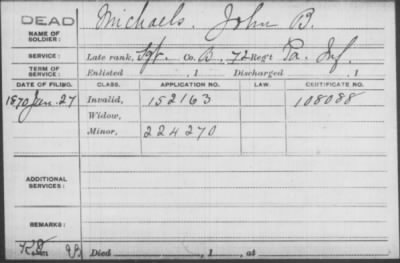 DEAD
NAME OF SOLDIER: Michaels, John B.
SERVICE: Late rank, Sgt. Co. B, 72 Reg't Pa. Inf.
TERM OF SERVICE: Enlisted , 1 Discharged , 1
DATE OF FILING. CLASS. APPLICATION NO. LAW. CERTIFICATE NO.
1870 Jan. 27 Invalid, 152163 108088
Widow,
Minor, 224270
ADDITIONAL SERVICES:
REMARKS:
Died , 1 , at